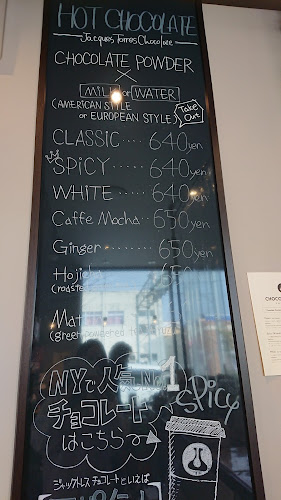 HOT CHOCOLATE
Jacques Torres Chocolate
CHOCOLATE POWDER
×
MILK or WATER
(AMERICAN STYLE
or EUROPEAN STYLE)
Take Out
CLASSIC ····· 640yen
SPiCY ···· 640yen
WHITE ···· 640yen
Caffe Mocha ··· 650yen
Ginger ······· 650yen
650yen
(green powdered
NYで人気No.1
チョコレート
はこちら
SPiCY
ジャックトレス チョコレートといえば